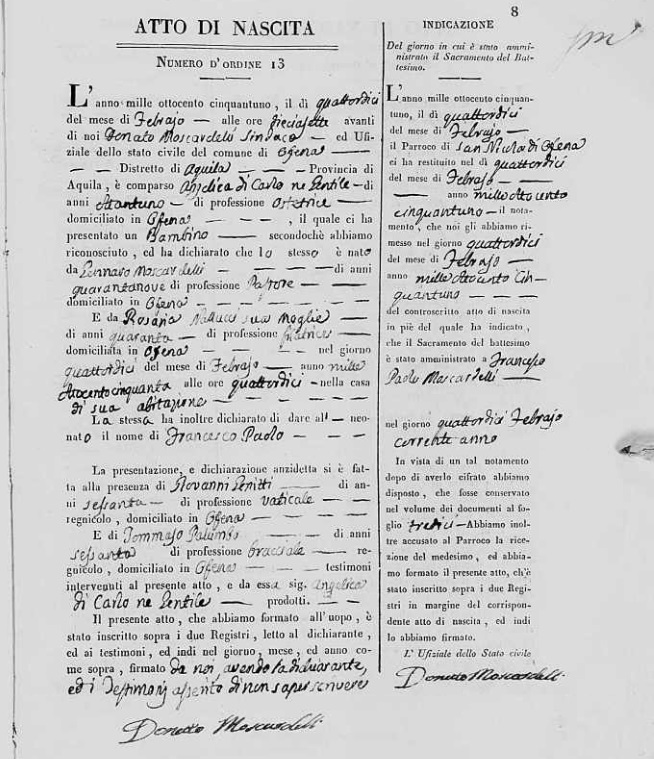 8
ATTO DI NASCITA
NUMERO D'ORDINE 13
L'anno mille ottocento cinquantuno, il dì quattordici
del mese di Febrajo — alle ore dieciasette avanti
di noi Donato Moscardelli Sindaco — ed Ufi-
ziale dello stato civile del comune di Ofena —
— — Distretto di Aquila — — Provincia di
Aquila, è comparso Angelica di Carlo ne Gentile — di
anni ottantuno — di professione Ostetrice —
domiciliato in Ofena — — — , il quale ci ha
presentato un Bambino — secondochè abbiamo
riconosciuto, ed ha dichiarato che lo stesso è nato
da Gennaro Moscardelli — — — — di anni
quarantanove di professione Pastore —
domiciliato in Ofena — — — —
E da Rosaria sua moglie —
di anni quaranta — di professione filatrice —
domiciliata in Ofena — — — nel giorno
quattordici del mese di Febrajo — anno mille
ottocentocinquanta alle ore quattordici — nella casa
di sua abitazione — — — —
La stessa ha inoltre dichiarato di dare al — neo-
nato il nome di Francesco Paolo — — — —
La presentazione, e dichiarazione anzidetta si è fat-
ta alla presenza di Giovanni — di an-
ni sessanta — di professione vaticale — —
regnicolo, domiciliato in Ofena — — — —
E di Tommaso Palumbo — — — di anni
sessanta di professione bracciale — re-
gnicolo, domiciliato in Ofena — — — testimoni
intervenuti al presente atto, e da essa sig. Angelica
di Carlo ne Gentile — prodotti. — —
Il presente atto, che abbiamo formato all'uopo, è
stato inscritto sopra i due Registri, letto al dichiarante,
ed ai testimoni, ed indi nel giorno, mese, ed anno co-
me sopra, firmato da noi, avendo la dichiarante,
ed i Testimonj asserito di non saper scrivere
Donato Moscardelli
INDICAZIONE
Del giorno in cui è stato ammi-
nistrato il Sacramento del Bat-
tesimo.
L'anno mille ottocento cinquan-
tuno, il dì quattordici
del mese di Febrajo —
il Parroco di San Nicola di Ofena
ci ha restituito nel dì quattordici
del mese di Febrajo —
— anno mille ottocento
cinquantuno — il nota-
mento, che noi gli abbiamo ri-
messo nel giorno quattordici
del mese di Febrajo —
anno mille ottocento cin-
quantuno —
del controscritto atto di nascita
in piè del quale ha indicato,
che il Sacramento del battesimo
è stato amministrato a Francesco
Paolo Moscardelli —
nel giorno quattordici Febrajo
corrente anno
In vista di un tal notamento
dopo di averlo cifrato abbiamo
disposto, che fosse conservato
nel volume dei documenti al fo-
glio tredici — Abbiamo inol-
tre accusato al Parroco la rice-
zione del medesimo, ed abbia-
mo formato il presente atto, ch'è
stato inscritto sopra i due Regi-
stri in margine del corrispon-
dente atto di nascita, ed indi
lo abbiamo firmato.
L' Ufiziale dello Stato civile
Donato Moscardelli